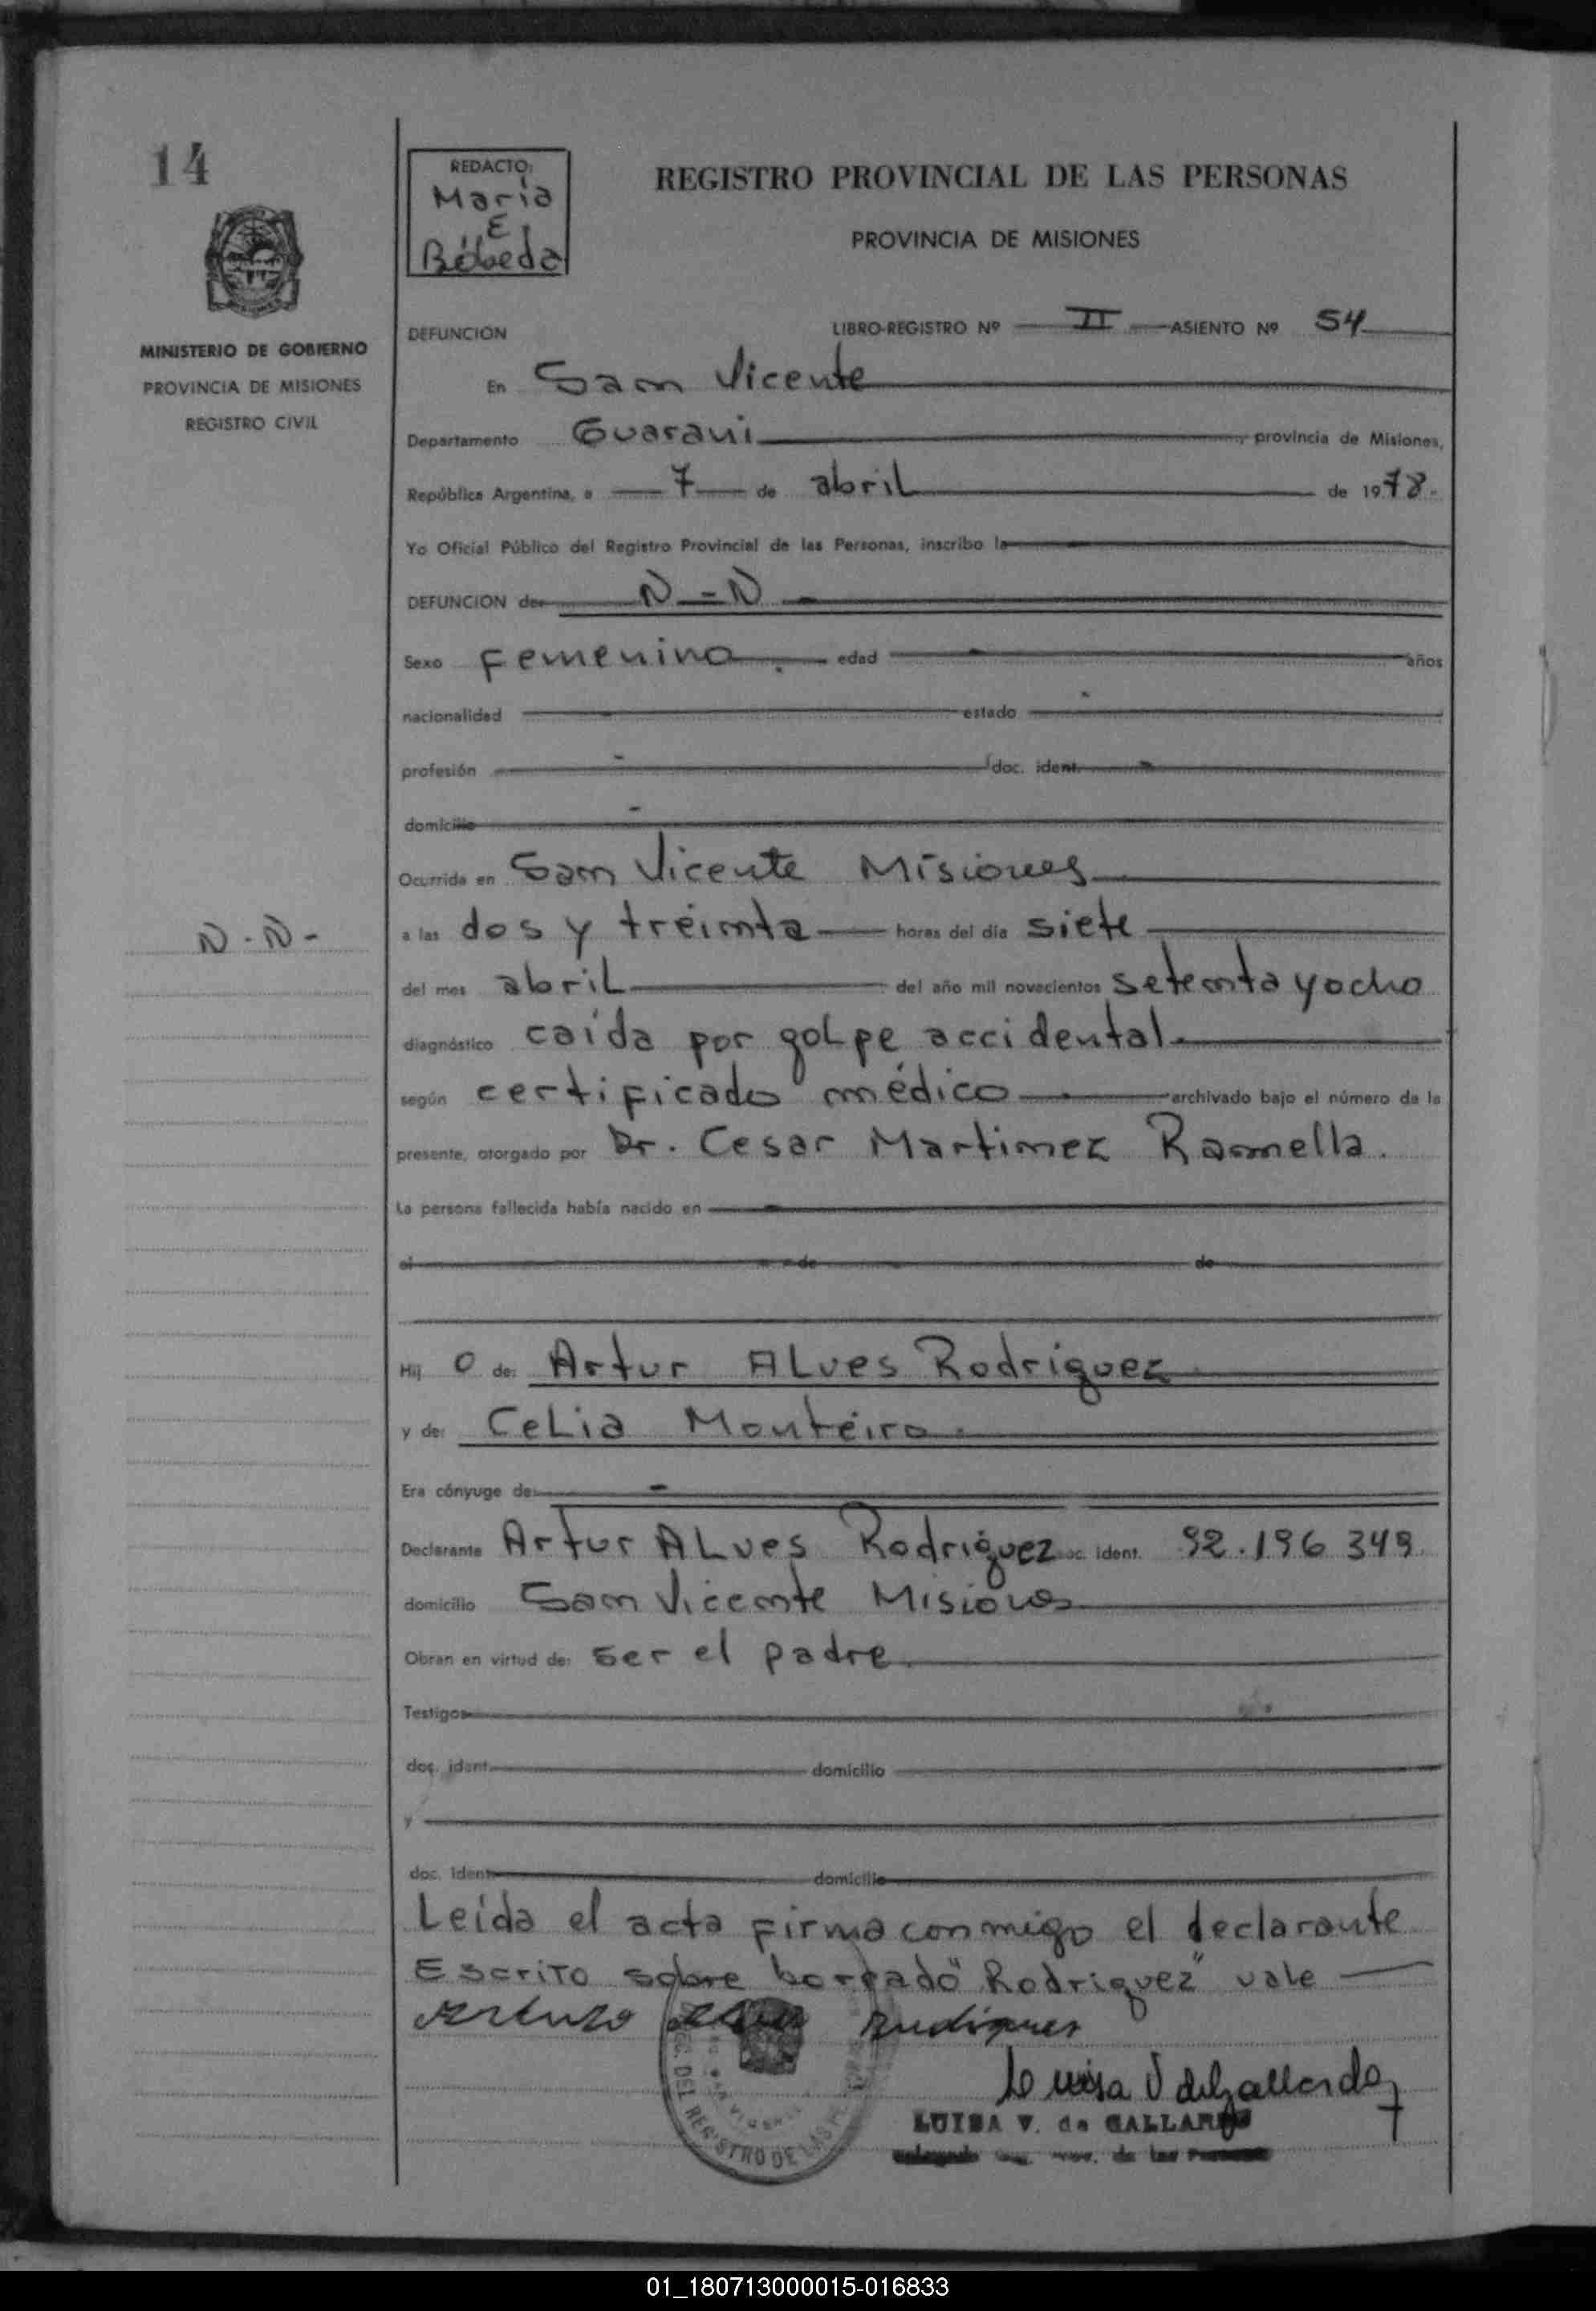 14
REDACTO:
Maria
E
Bóbeda
REGISTRO PROVINCIAL DE LAS PERSONAS
PROVINCIA DE MISIONES
MINISTERIO DE GOBIERNO
PROVINCIA DE MISIONES
REGISTRO CIVIL
DEFUNCION LIBRO-REGISTRO Nº II ASIENTO Nº 54
En San Vicente
Departamento Guarani provincia de Misiones,
República Argentina, a 7 de abril de 1978.
Yo Oficial Público del Registro Provincial de las Personas, inscribo la
DEFUNCION de: N-N
Sexo Femenino. edad años
nacionalidad estado
profesión doc. ident.
domicilio
Ocurrida en San Vicente Misiones
N-N-
a las dos y treinta horas del día siete
del mes abril del año mil novecientos setenta y ocho
diagnóstico caída por golpe accidental.
según certificado médico archivado bajo el número de la
presente, otorgado por Dr. Cesar Martinez Ramella.
La persona fallecida había nacido en
el de de
Hij o de: Artur ALves Rodriguez
y de: CeLia Monteiro.
Era cónyuge de:
Declarante Artur ALves Rodriguez doc. ident. 92.196 349
domicilio San Vicente Misiones
Obran en virtud de: ser el padre.
Testigos
doc. ident. domicilio
y
doc. ident. domicilio
Leída el acta firma conmigo el declarante
Escrito sobre borrado "Rodriguez" vale
Arturo Rudigues
Luisa V de Gallardo
LUISA V. de GALLARDO
REG. DEL REGISTRO DE LAS
01_180713000015-016833